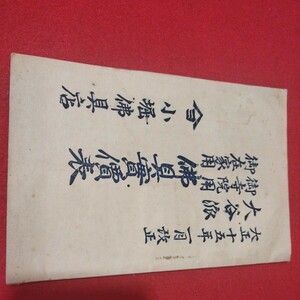 大正十五年一月改正
大谷派
御寺院用
御在家用
佛具實價表
小堀佛具店